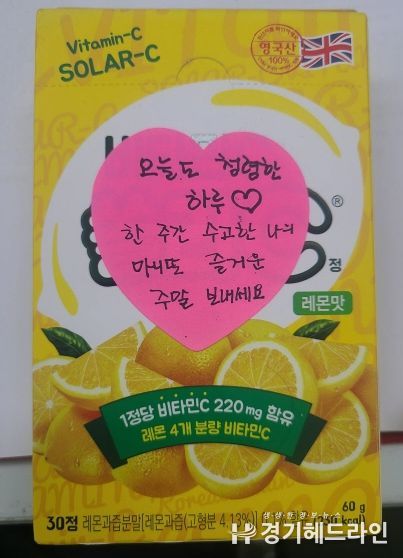 Vitamin-C
SOLAR-C
영국산
100%
오늘도 청렴한
하루♡
한 주간 수고한 나의
마니또 즐거운
주말 보내세요
®
정
레몬맛
1정당 비타민C 220 mg 함유
레몬 4개 분량 비타민C
60 g
30정 레몬과즙분말[레몬과즙(고형분 4.13%)]
경기헤드라인